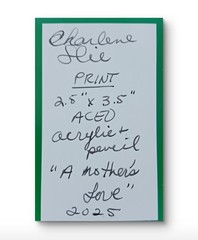 Charlene
PRINT
2.5" x 3.5"
ACEO
acrylic +
pencil
"A Mother's
Love"
2025